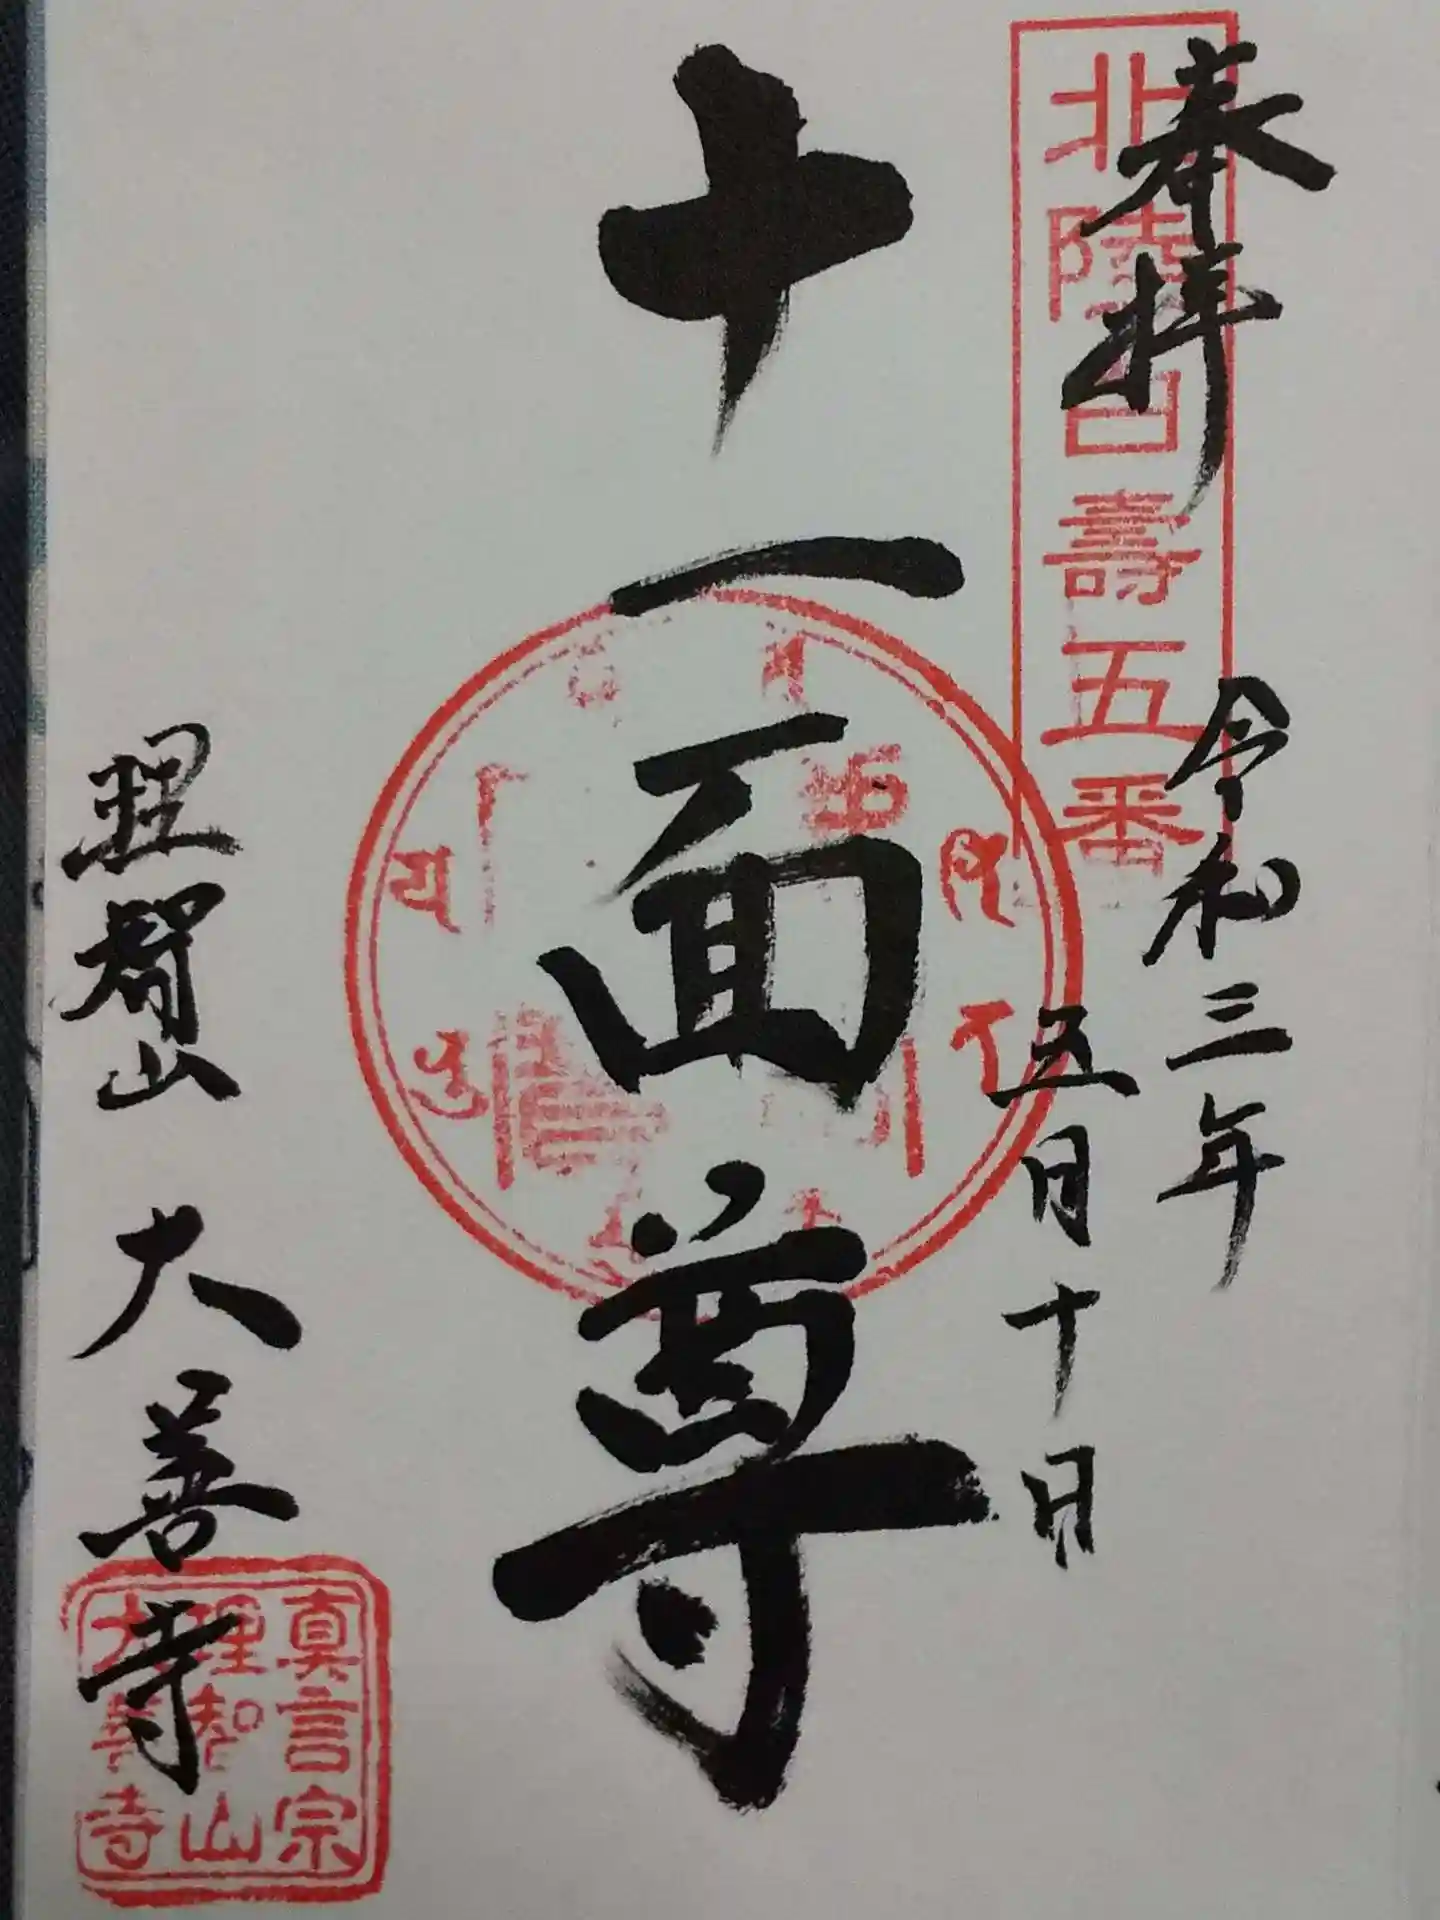 奉拝
北陸白壽五番
令和三年
五月十日
十一面尊
理智山 大善寺
真言宗
理智山
大善寺